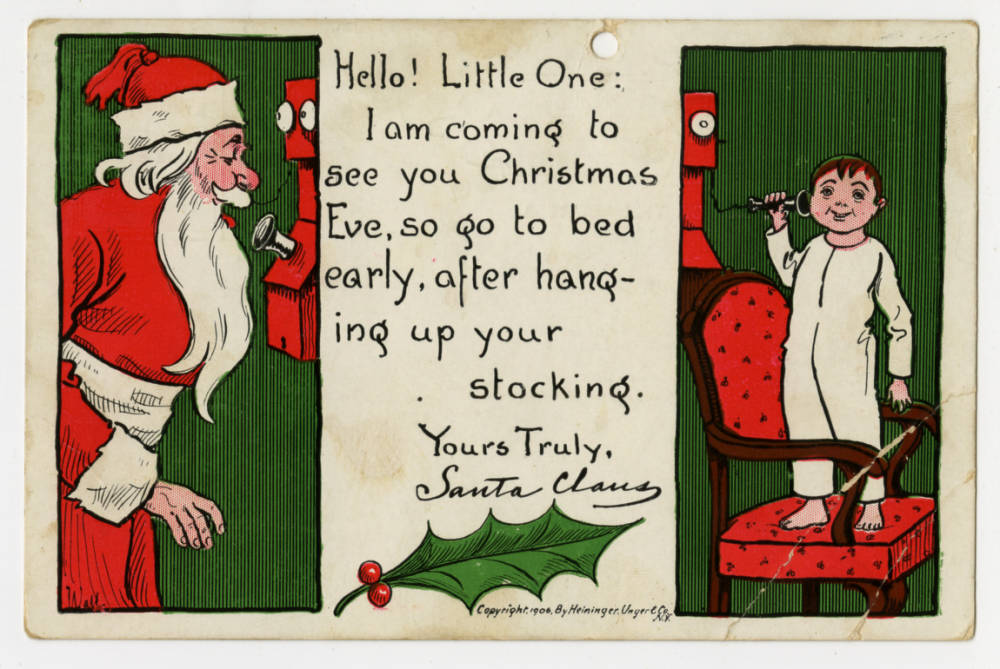 Hello! Little One:
I am coming to
see you Christmas
Eve, so go to bed
early, after hang-
ing up your
stocking.
Yours Truly,
Santa Claus
Copyright, 1906, By Heininger, Unger & Co.
N.Y.
Wall